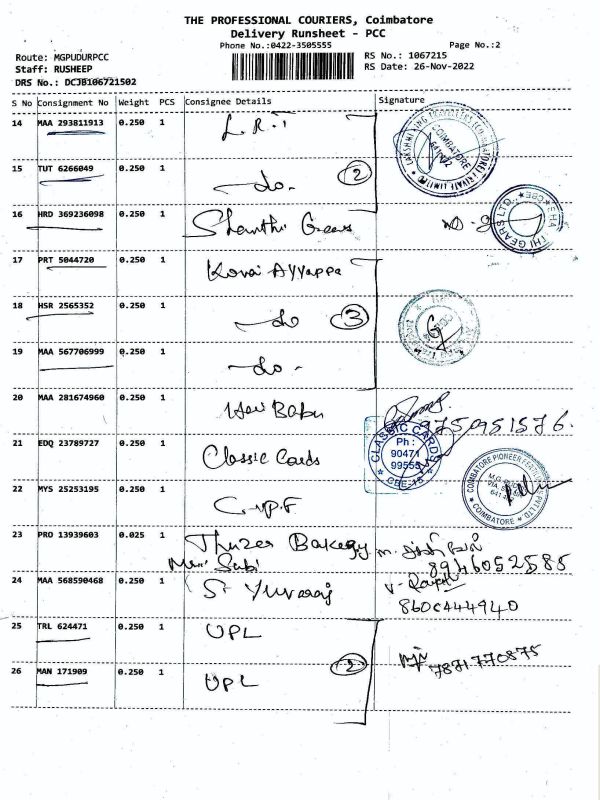 THE PROFESSIONAL COURIERS, Coimbatore
Delivery Runsheet - PCC
Phone No.:0422-3505555 Page No.:2
Route: MGPUDURPCC RS No.: 1067215
Staff: RUSHEEP RS Date: 26-Nov-2022
DRS No.: DCJB106721502
S No Consignment No Weight PCS Consignee Details Signature
14 MAA 293811913 0.250 1 L.R.T
15 TUT 6266049 0.250 1 do. 2
16 HRD 369236098 0.250 1 Shanthi Gears
17 PRT 5044720 0.250 1 Kovai Ayyappa
18 HSR 2565352 0.250 1 do 3
19 MAA 567706999 0.250 1 do.
20 MAA 281674960 0.250 1 Hari Babu 9750951576.
21 EDQ 23789727 0.250 1 Classic Cards
CLASSIC CARDS
Ph :
90471
99553
CBE-15
22 MYS 25253195 0.250 1 C.P.F
COIMBATORE PIONEER FERTILIZERS PVT LTD
COIMBATORE
23 PRO 13939603 0.025 1 Thuzer Bakery
8946052585
24 MAA 568590468 0.250 1 S. Yuvaraj
8600444940
25 TRL 624471 0.250 1 UPL
26 MAN 171909 0.250 1 UPL 2 7871770875